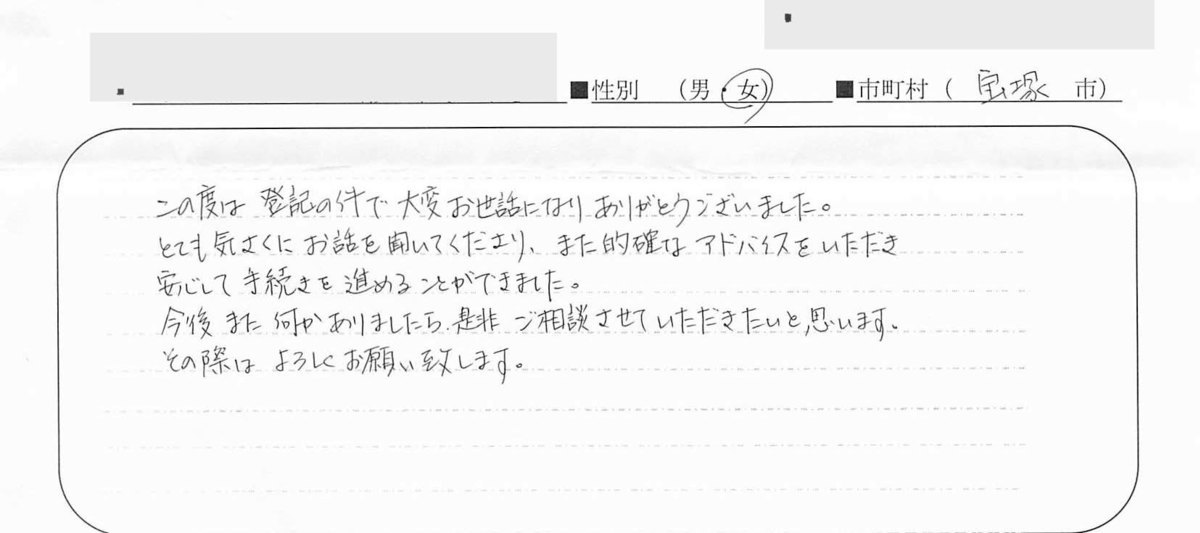 ■性別 (男・女) ■市町村 ( 宝塚 市)
この度は 登記の件で 大変 お世話になり ありがとうございました。
とても 気さくに お話を 聞いてくださり、また 的確な アドバイスを いただき
安心して 手続きを 進める ことができました。
今後 また 何か ありましたら、是非 ご相談させて いただきたいと思います。
その際は よろしく お願い致します。